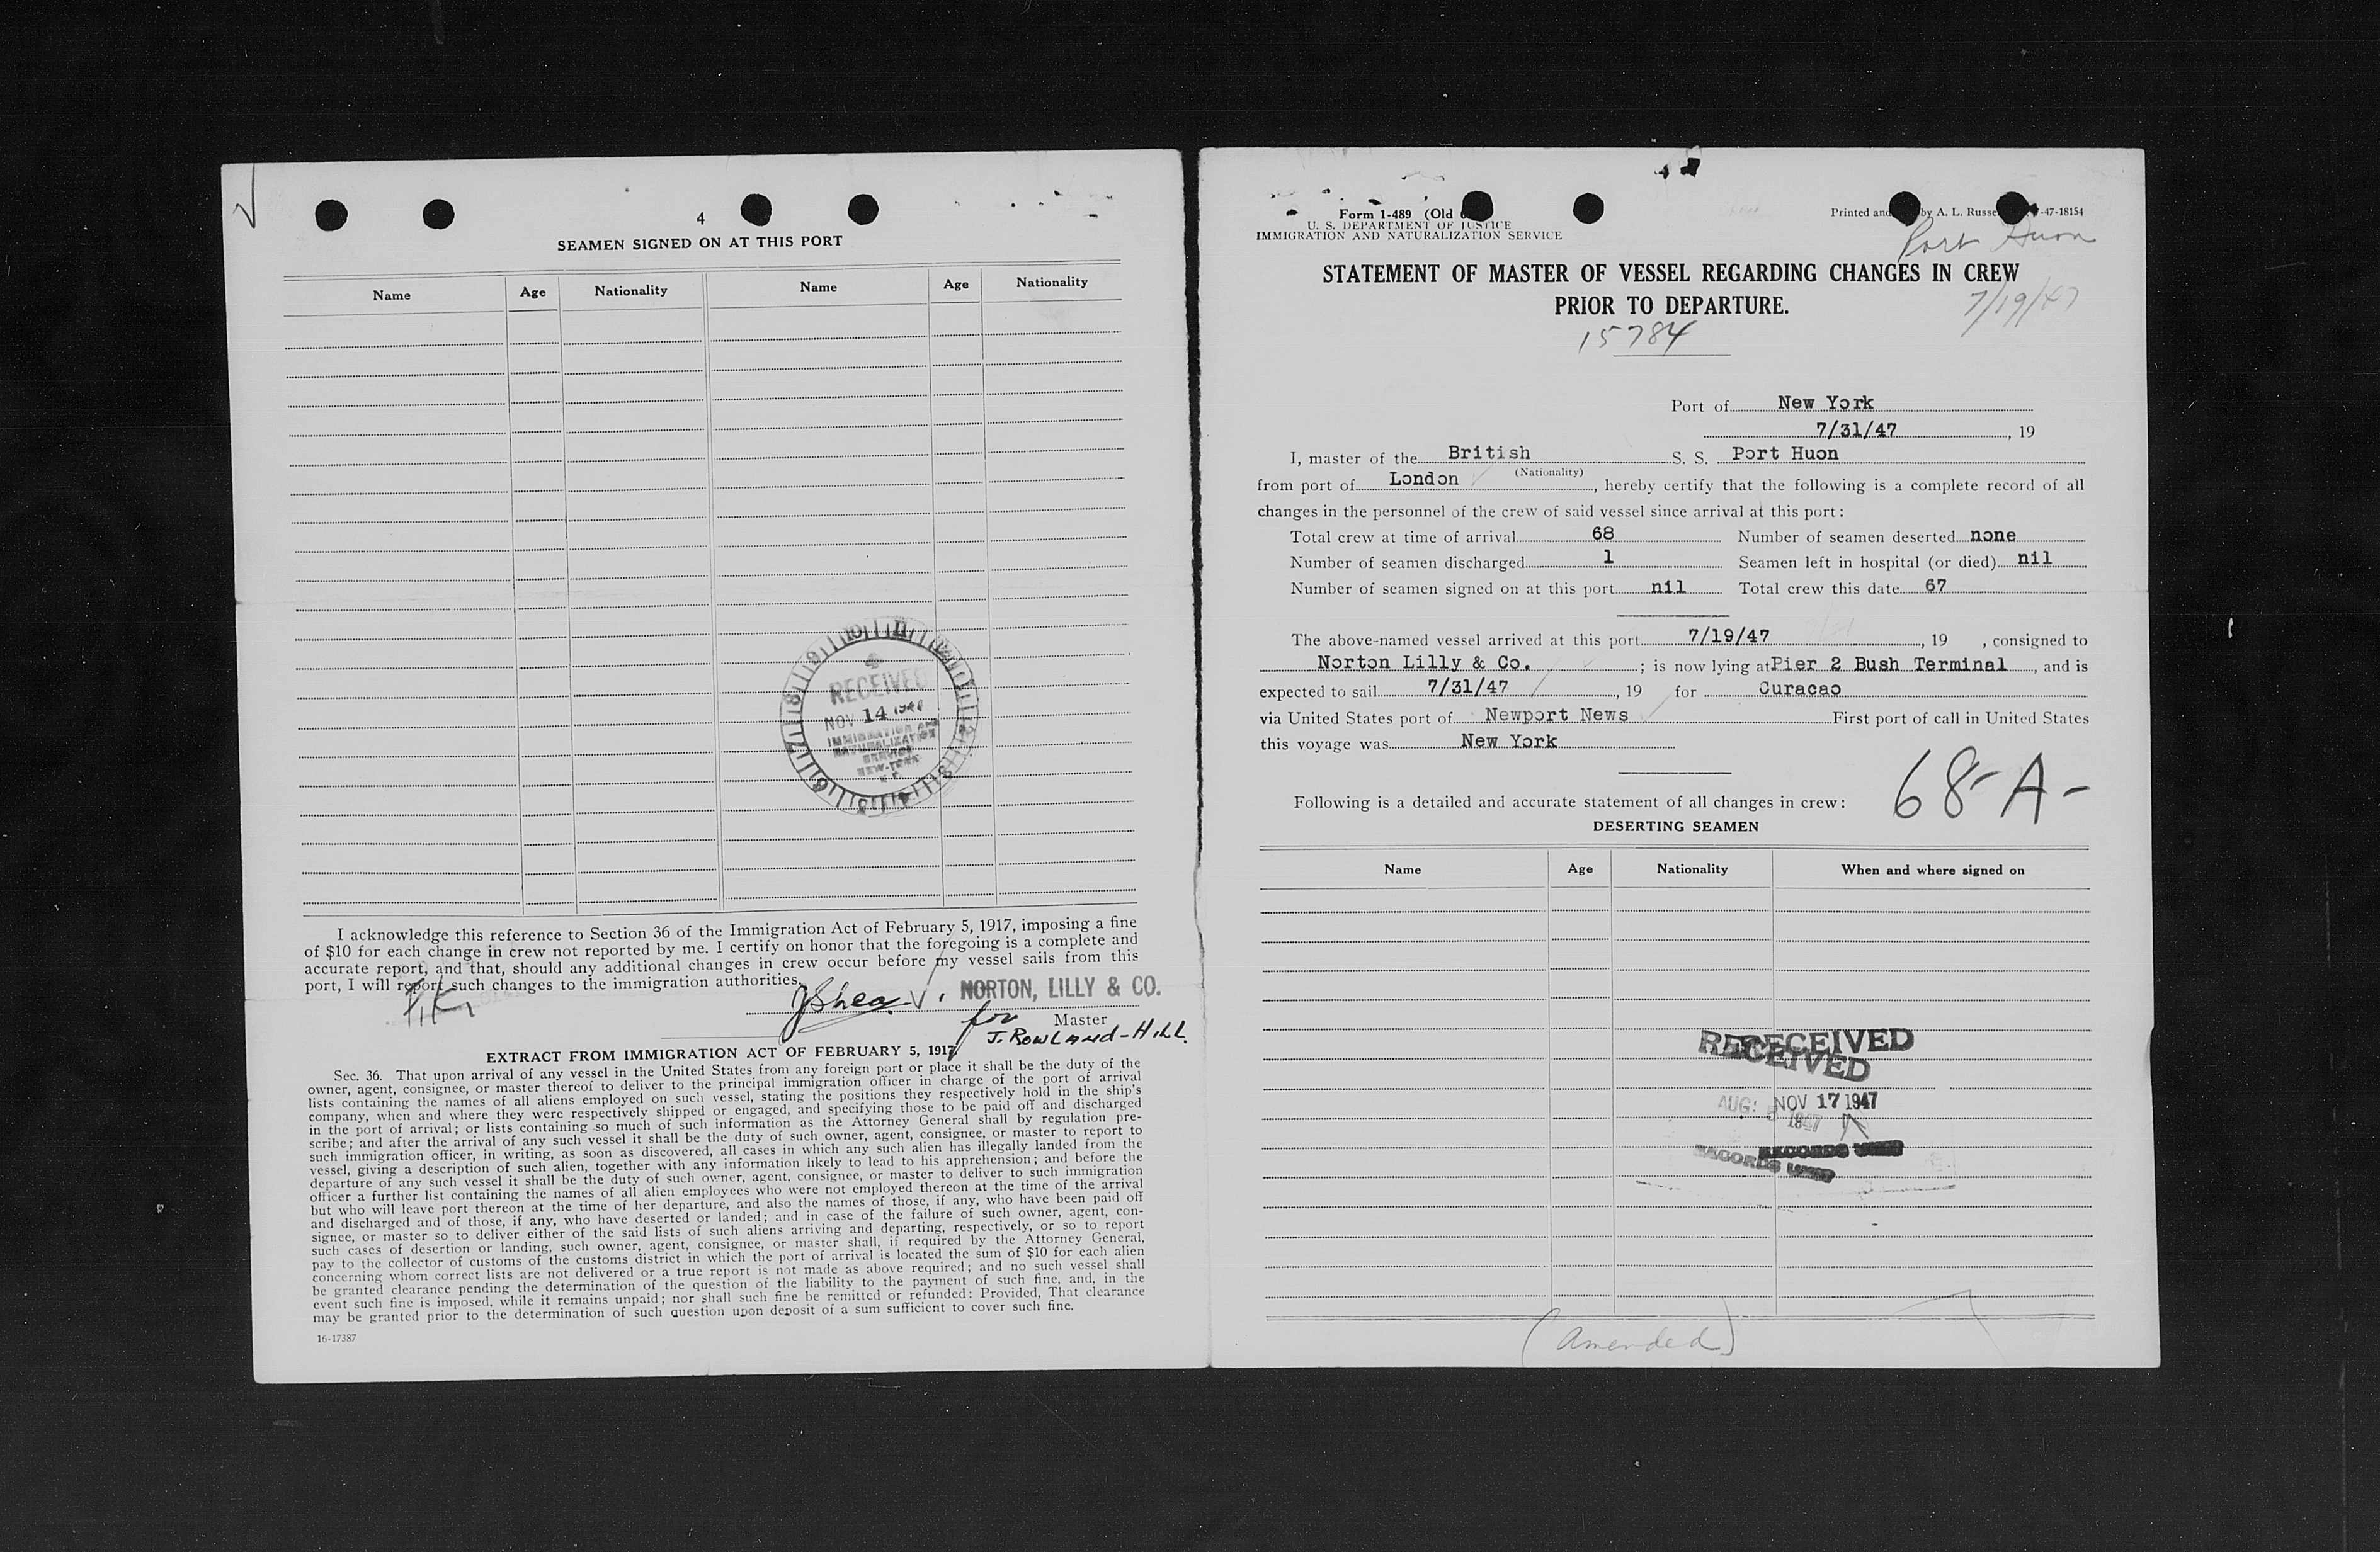 4
SEAMEN SIGNED ON AT THIS PORT
Name Age Nationality Name Age Nationality
RECEIVED
NOV 14
IMMIGRATION AND
NATURALIZATION
SERVICE
NEW YORK
I acknowledge this reference to Section 36 of the Immigration Act of February 5, 1917, imposing a fine
of $10 for each change in crew not reported by me. I certify on honor that the foregoing is a complete and
accurate report, and that, should any additional changes in crew occur before my vessel sails from this
port, I will report such changes to the immigration authorities.
J Shea NORTON, LILLY & CO.
for Master
J. Rowland-Hill.
EXTRACT FROM IMMIGRATION ACT OF FEBRUARY 5, 1917
Sec. 36. That upon arrival of any vessel in the United States from any foreign port or place it shall be the duty of the
owner, agent, consignee, or master thereof to deliver to the principal immigration officer in charge of the port of arrival
lists containing the names of all aliens employed on such vessel, stating the positions they respectively hold in the ship's
company, when and where they were respectively shipped or engaged, and specifying those to be paid off and discharged
in the port of arrival; or lists containing so much of such information as the Attorney General shall by regulation pre-
scribe; and after the arrival of any such vessel it shall be the duty of such owner, agent, consignee, or master to report to
such immigration officer, in writing, as soon as discovered, all cases in which any such alien has illegally landed from the
vessel, giving a description of such alien, together with any information likely to lead to his apprehension; and before the
departure of any such vessel it shall be the duty of such owner, agent, consignee, or master to deliver to such immigration
officer a further list containing the names of all alien employees who were not employed thereon at the time of the arrival
but who will leave port thereon at the time of her departure, and also the names of those, if any, who have been paid off
and discharged and of those, if any, who have deserted or landed; and in case of the failure of such owner, agent, con-
signee, or master so to deliver either of the said lists of such aliens arriving and departing, respectively, or so to report
such cases of desertion or landing, such owner, agent, consignee, or master shall, if required by the Attorney General,
pay to the collector of customs of the customs district in which the port of arrival is located the sum of $10 for each alien
concerning whom correct lists are not delivered or a true report is not made as above required; and no such vessel shall
be granted clearance pending the determination of the question of the liability to the payment of such fine, and, in the
event such fine is imposed, while it remains unpaid; nor shall such fine be remitted or refunded: Provided, That clearance
may be granted prior to the determination of such question upon deposit of a sum sufficient to cover such fine.
16-17387
Form 1-489 (Old
U. S. DEPARTMENT OF JUSTICE
IMMIGRATION AND NATURALIZATION SERVICE
Printed and by A. L. Russe -47-18154
Port Huon
STATEMENT OF MASTER OF VESSEL REGARDING CHANGES IN CREW
PRIOR TO DEPARTURE.
7/19/47
15784
Port of New York
7/31/47, 19
I, master of the British S. S. Port Huon
(Nationality)
from port of London, hereby certify that the following is a complete record of all
changes in the personnel of the crew of said vessel since arrival at this port:
Total crew at time of arrival 68 Number of seamen deserted none
Number of seamen discharged 1 Seamen left in hospital (or died) nil
Number of seamen signed on at this port nil Total crew this date 67
The above-named vessel arrived at this port 7/19/47, 19 , consigned to
Norton Lilly & Co. ; is now lying at Pier 2 Bush Terminal, and is
expected to sail 7/31/47, 19 for Curacao
via United States port of Newport News First port of call in United States
this voyage was New York
68-A-
Following is a detailed and accurate statement of all changes in crew:
DESERTING SEAMEN
Name Age Nationality When and where signed on
RECEIVED
RECEIVED
AUG: NOV 17 1947
1947
RECORDS UNIT
RECORDS UNIT
(Amended)